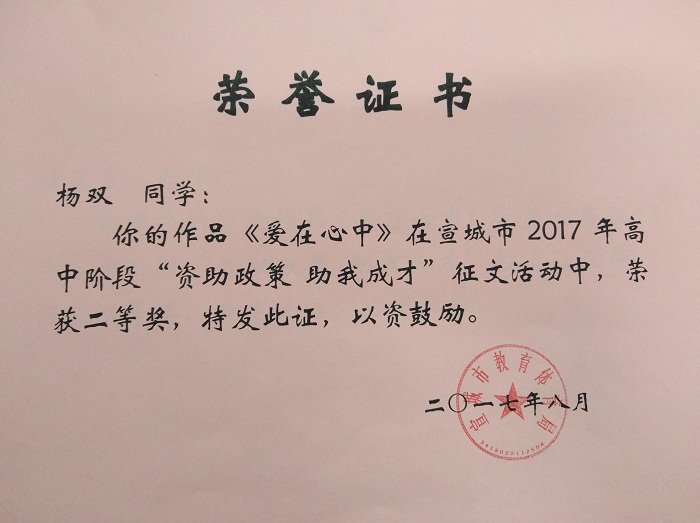 荣誉证书
杨双 同学：
你的作品《爱在心中》在宣城市 2017 年高
中阶段“资助政策 助我成才”征文活动中，荣
获二等奖，特发此证，以资鼓励。
宣城市教育体育局
二〇一七年八月